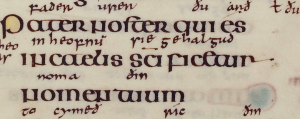 fader uren ðu arð ł ðu
Pater noster qui es
in heofnu sie gehalgud
in caelis scificetur
noma ðin
nomen tuum
to cymeð ric ðin